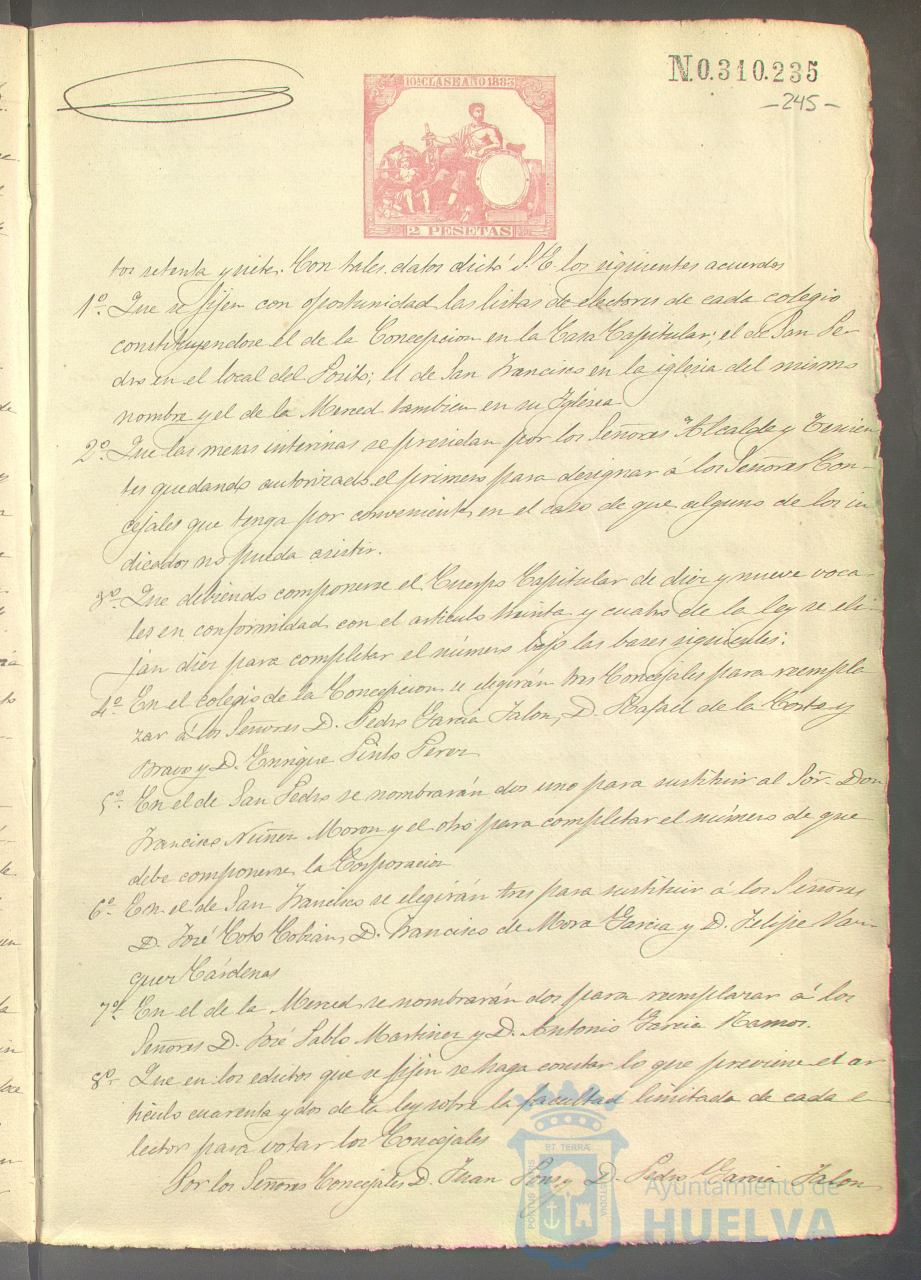 10ª CLASE AÑO 1883
N.0.310.235
-245-
2 PESETAS
tos setenta y siete. Con tales datos dictó S. E. los siguientes acuerdos
1º. Que se fijen con oportunidad las listas de electores de cada colegio
constituyendose el de la Concepcion en la Casa Capitular; el de San Pe-
dro en el local del Posito; el de San Francisco en la iglesia del mismo
nombre y el de la Merced tambien en su Iglesia
2º. Que las mesas interinas se presidan por los Señores Alcalde y Tenien
tes quedando autorizado el primero para designar á los Señores Con-
cejales que tenga por conveniente en el caso de que alguno de los in
dicados no pueda asistir.
3º. Que debiendo componerse el Cuerpo Capitular de diez y nueve voca-
les en conformidad con el articulo treinta y cuatro de la ley se eli-
jan diez para completar el número bajo las bases siguientes:
4º. En el colegio de la Concepcion se elegirán tres Concejales para reempla
zar á los Señores D. Pedro Garcia Jalon, D. Rafael de la Corte y
Bravo y D. Enrique Pinto Perez
5º. En el de San Pedro se nombrarán dos uno para sustituir al Sor. Don
Francisco Nuñez Moron y el otro para completar el número de que
debe componerse la Corporacion
6º. En el de San Francisco se elegirán tres para sustituir á los Señores
D. José Coto Cobian, D. Francisco de Mora Garcia y D. Felipe Vaz-
quez Cárdenas
7º. En el de la Merced se nombrarán dos para reemplazar á los
Señores D. José Pablo Martinez y D. Antonio Garcia Ramos.
8º. Que en los edictos que se fijen se haga constar lo que previene el ar
ticulo cuarenta y dos de la ley sobre la facultad limitada de cada e-
lector para votar los Concejales
Por los Señores Concejales D. Juan Pons y D. Pedro Garcia Jalon
PORTUS MARIS ET TERRÆ CUSTODIA
Ayuntamiento de
HUELVA